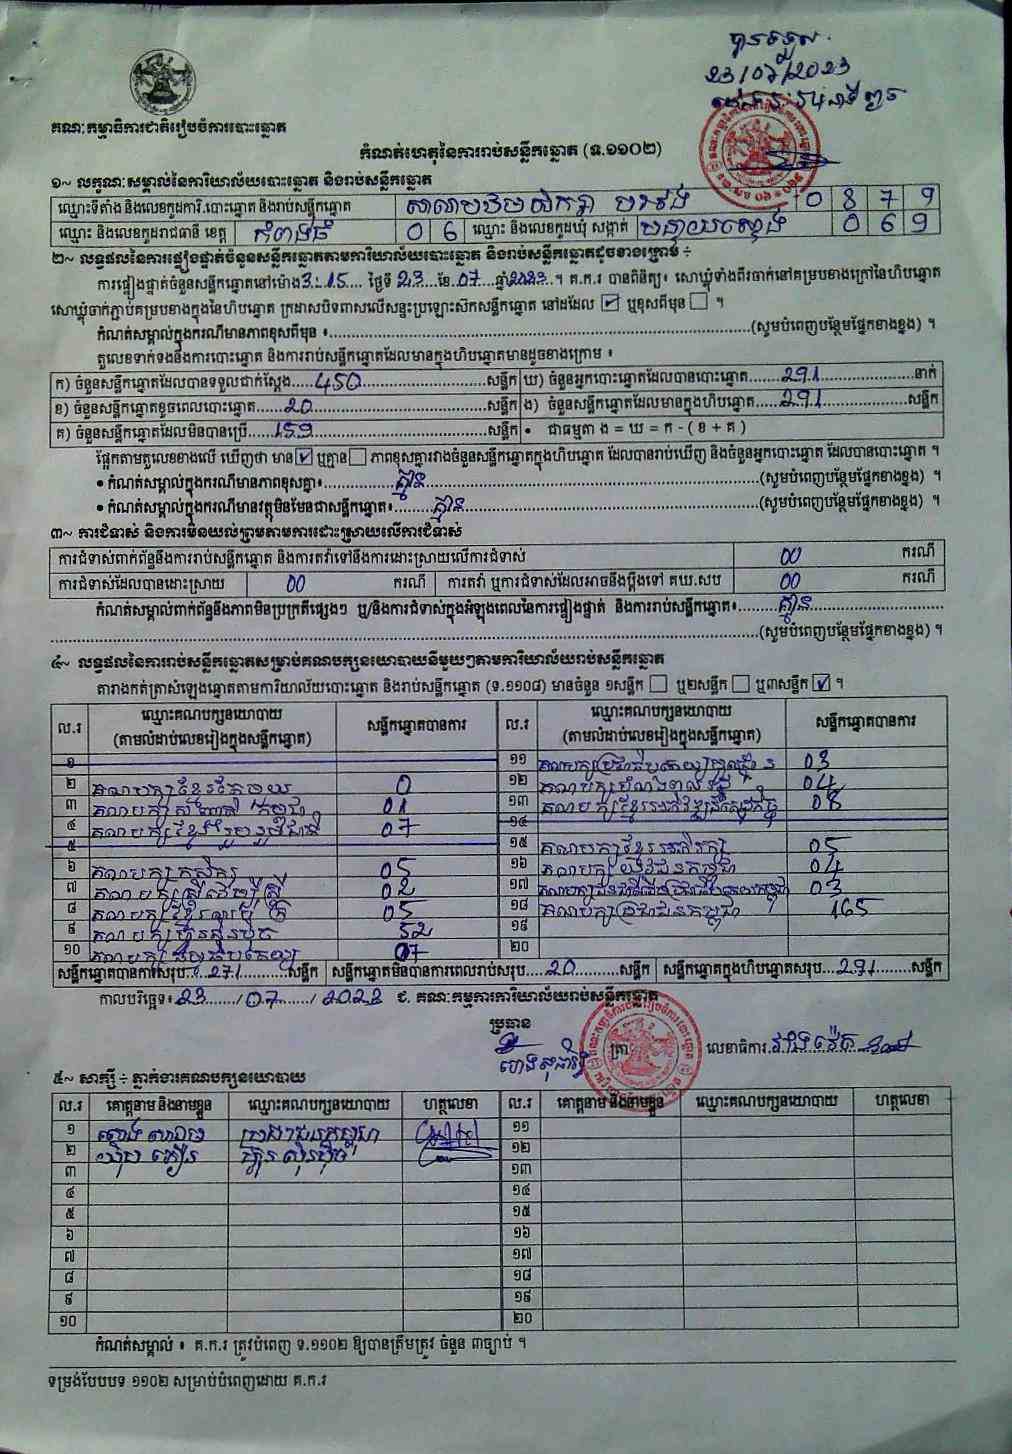 បានទទួល
23/07/2023
គណៈកម្មាធិការជាតិរៀបចំការបោះឆ្នោត
កំណត់ហេតុនៃការរាប់សន្លឹកឆ្នោត (ទ.១១០២)
១~ លក្ខណៈសម្គាល់នៃការិយាល័យបោះឆ្នោត និងរាប់សន្លឹកឆ្នោត
ឈ្មោះទីតាំង និងលេខកូដការិ.បោះឆ្នោត និងរាប់សន្លឹកឆ្នោត សាលាបឋមសិក្សា 0 8 7 9
ឈ្មោះ និងលេខកូដរាជធានី ខេត្ត កំពង់ធំ 0 6 ឈ្មោះ និងលេខកូដឃុំ សង្កាត់ 0 6 9
២~ លទ្ធផលនៃការផ្ទៀងផ្ទាត់ចំនួនសន្លឹកឆ្នោតតាមការិយាល័យបោះឆ្នោត និងរាប់សន្លឹកឆ្នោតដូចខាងក្រោម ÷
ការផ្ទៀងផ្ទាត់ចំនួនសន្លឹកឆ្នោតនៅម៉ោង 3:15 ថ្ងៃទី 23 ខែ 07 ឆ្នាំ 2023 ។ គ.ក.រ បានពិនិត្យ៖ សោឃ្មុំទាំងពីរចាក់នៅគម្របខាងក្រៅនៃហិបឆ្នោត
សោឃ្មុំចាក់ភ្ជាប់គម្របខាងក្នុងនៃហិបឆ្នោត ក្រដាសបិទពាសលើសន្ទះប្រឡោះស៊កសន្លឹកឆ្នោត នៅដដែល ☑ ឬខុសពីមុន ☐ ។
កំណត់សម្គាល់ក្នុងករណីមានភាពខុសពីមុន ៖ (សូមបំពេញបន្ថែមផ្នែកខាងខ្នង) ។
តួលេខទាក់ទងនឹងការបោះឆ្នោត និងការរាប់សន្លឹកឆ្នោតដែលមានក្នុងហិបឆ្នោតមានដូចខាងក្រោម ៖
ក) ចំនួនសន្លឹកឆ្នោតដែលបានទទួលជាក់ស្តែង 450 សន្លឹក ឃ) ចំនួនអ្នកបោះឆ្នោតដែលបានបោះឆ្នោត 291 នាក់
ខ) ចំនួនសន្លឹកឆ្នោតខូចពេលបោះឆ្នោត 20 សន្លឹក ង) ចំនួនសន្លឹកឆ្នោតដែលមានក្នុងហិបឆ្នោត 291 សន្លឹក
គ) ចំនួនសន្លឹកឆ្នោតដែលមិនបានប្រើ 159 សន្លឹក • ជាធម្មតា ង = ឃ = ក - ( ខ + គ )
ផ្អែកតាមតួលេខខាងលើ ឃើញថា មាន ☑ ឬគ្មាន ☐ ភាពខុសគ្នារវាងចំនួនសន្លឹកឆ្នោតក្នុងហិបឆ្នោត ដែលបានរាប់ឃើញ និងចំនួនអ្នកបោះឆ្នោត ដែលបានបោះឆ្នោត ។
• កំណត់សម្គាល់ក្នុងករណីមានភាពខុសគ្នា៖ គ្មាន (សូមបំពេញបន្ថែមផ្នែកខាងខ្នង) ។
• កំណត់សម្គាល់ក្នុងករណីមានវត្ថុមិនមែនជាសន្លឹកឆ្នោត៖ គ្មាន (សូមបំពេញបន្ថែមផ្នែកខាងខ្នង) ។
៣~ ការជំទាស់ និងការមិនយល់ព្រមតាមការដោះស្រាយលើការជំទាស់
ការជំទាស់ពាក់ព័ន្ធនឹងការរាប់សន្លឹកឆ្នោត និងការតវ៉ាទៅនឹងការដោះស្រាយលើការជំទាស់ 00 ករណី
ការជំទាស់ដែលបានដោះស្រាយ 00 ករណី ការតវ៉ា ឬការជំទាស់ដែលអាចនឹងប្តឹងទៅ គឃ.សប 00 ករណី
កំណត់សម្គាល់ពាក់ព័ន្ធនឹងភាពមិនប្រក្រតីផ្សេងៗ ឬ/និងការជំទាស់ក្នុងអំឡុងពេលនៃការផ្ទៀងផ្ទាត់ និងការរាប់សន្លឹកឆ្នោត៖ គ្មាន
(សូមបំពេញបន្ថែមផ្នែកខាងខ្នង) ។
៤~ លទ្ធផលនៃការរាប់សន្លឹកឆ្នោតសម្រាប់គណបក្សនយោបាយនីមួយៗតាមការិយាល័យរាប់សន្លឹកឆ្នោត
តារាងកត់ត្រាសំឡេងឆ្នោតតាមការិយាល័យបោះឆ្នោត និងរាប់សន្លឹកឆ្នោត (ទ.១១០៨) មានចំនួន ១សន្លឹក ☐ ឬ២សន្លឹក ☐ ឬ៣សន្លឹក ☑ ។
ល.រ ឈ្មោះគណបក្សនយោបាយ (តាមលំដាប់លេខរៀងក្នុងសន្លឹកឆ្នោត) សន្លឹកឆ្នោតបានការ ល.រ ឈ្មោះគណបក្សនយោបាយ (តាមលំដាប់លេខរៀងក្នុងសន្លឹកឆ្នោត) សន្លឹកឆ្នោតបានការ
១ ១១ 03
២ គណបក្សខ្មែរតែមួយ 0 ១២ 04
៣ 01 ១៣ 08
៤ គណបក្សខ្មែររួបរួមជាតិ 07 ១៤
៥ ១៥ គណបក្សខ្មែរអភិរក្ស 05
៦ គណបក្សកសិករ 05 ១៦ គណបក្សយុវជនកម្ពុជា 04
៧ គណបក្សស្ត្រីដើម្បីស្ត្រី 02 ១៧ គណបក្សជនជាតិដើមប្រជាធិបតេយ្យកម្ពុជា 03
៨ 05 ១៨ គណបក្សប្រជាជនកម្ពុជា 165
៩ គណបក្សហ្វ៊ុនស៊ិនប៉ិច 52 ១៩
១០ 07 ២០
សន្លឹកឆ្នោតបានការសរុប 271 សន្លឹក សន្លឹកឆ្នោតមិនបានការពេលរាប់សរុប 20 សន្លឹក សន្លឹកឆ្នោតក្នុងហិបឆ្នោតសរុប 291 សន្លឹក
កាលបរិច្ឆេទ៖ 23 / 07 / 2023 ជ. គណៈកម្មការការិយាល័យរាប់សន្លឹកឆ្នោត
ប្រធាន
ត្រា លេខាធិការ
៥~ សាក្សី ÷ ភ្នាក់ងារគណបក្សនយោបាយ
ល.រ គោត្តនាម និងនាមខ្លួន ឈ្មោះគណបក្សនយោបាយ ហត្ថលេខា ល.រ គោត្តនាម និងនាមខ្លួន ឈ្មោះគណបក្សនយោបាយ ហត្ថលេខា
១ ប្រជាជនកម្ពុជា ១១
២ ហ្វ៊ុនស៊ិនប៉ិច ១២
៣ ១៣
៤ ១៤
៥ ១៥
៦ ១៦
៧ ១៧
៨ ១៨
៩ ១៩
១០ ២០
កំណត់សម្គាល់ ៖ គ.ក.រ ត្រូវបំពេញ ទ.១១០២ ឱ្យបានត្រឹមត្រូវ ចំនួន ៣ច្បាប់ ។
ទម្រង់បែបបទ ១១០២ សម្រាប់បំពេញដោយ គ.ក.រ